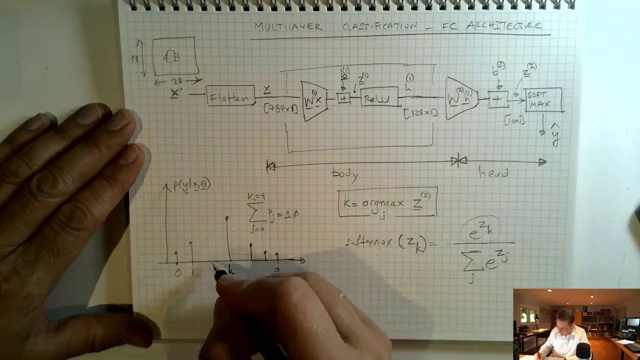 MULTILAYER CLASSIFICATION - FC ARCHITECTURE
28
← 28 →
X' Flatten x [787x1] W⁽¹⁾x b⁽¹⁾ + z⁽¹⁾ ReLU h⁽¹⁾ [128x1] W⁽²⁾h b⁽²⁾ + z⁽²⁾ [10x1] SOFT MAX
ŷ
body head
p(y|x,θ)
K=9
∑ p_j = 1.0
j=0
k = argmax z⁽²⁾
j
softmax (z_k) = e^{z_k}
∑ e^{z_j}
j
0 1 k 9